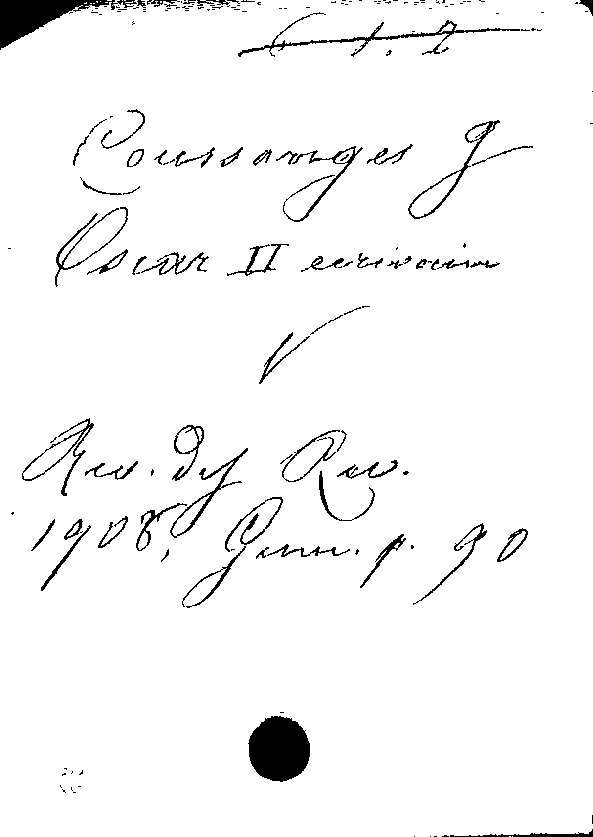 Coussanges J
Oscar II ecrivain
Rev. des Rev.
1908, Janv. p. 90